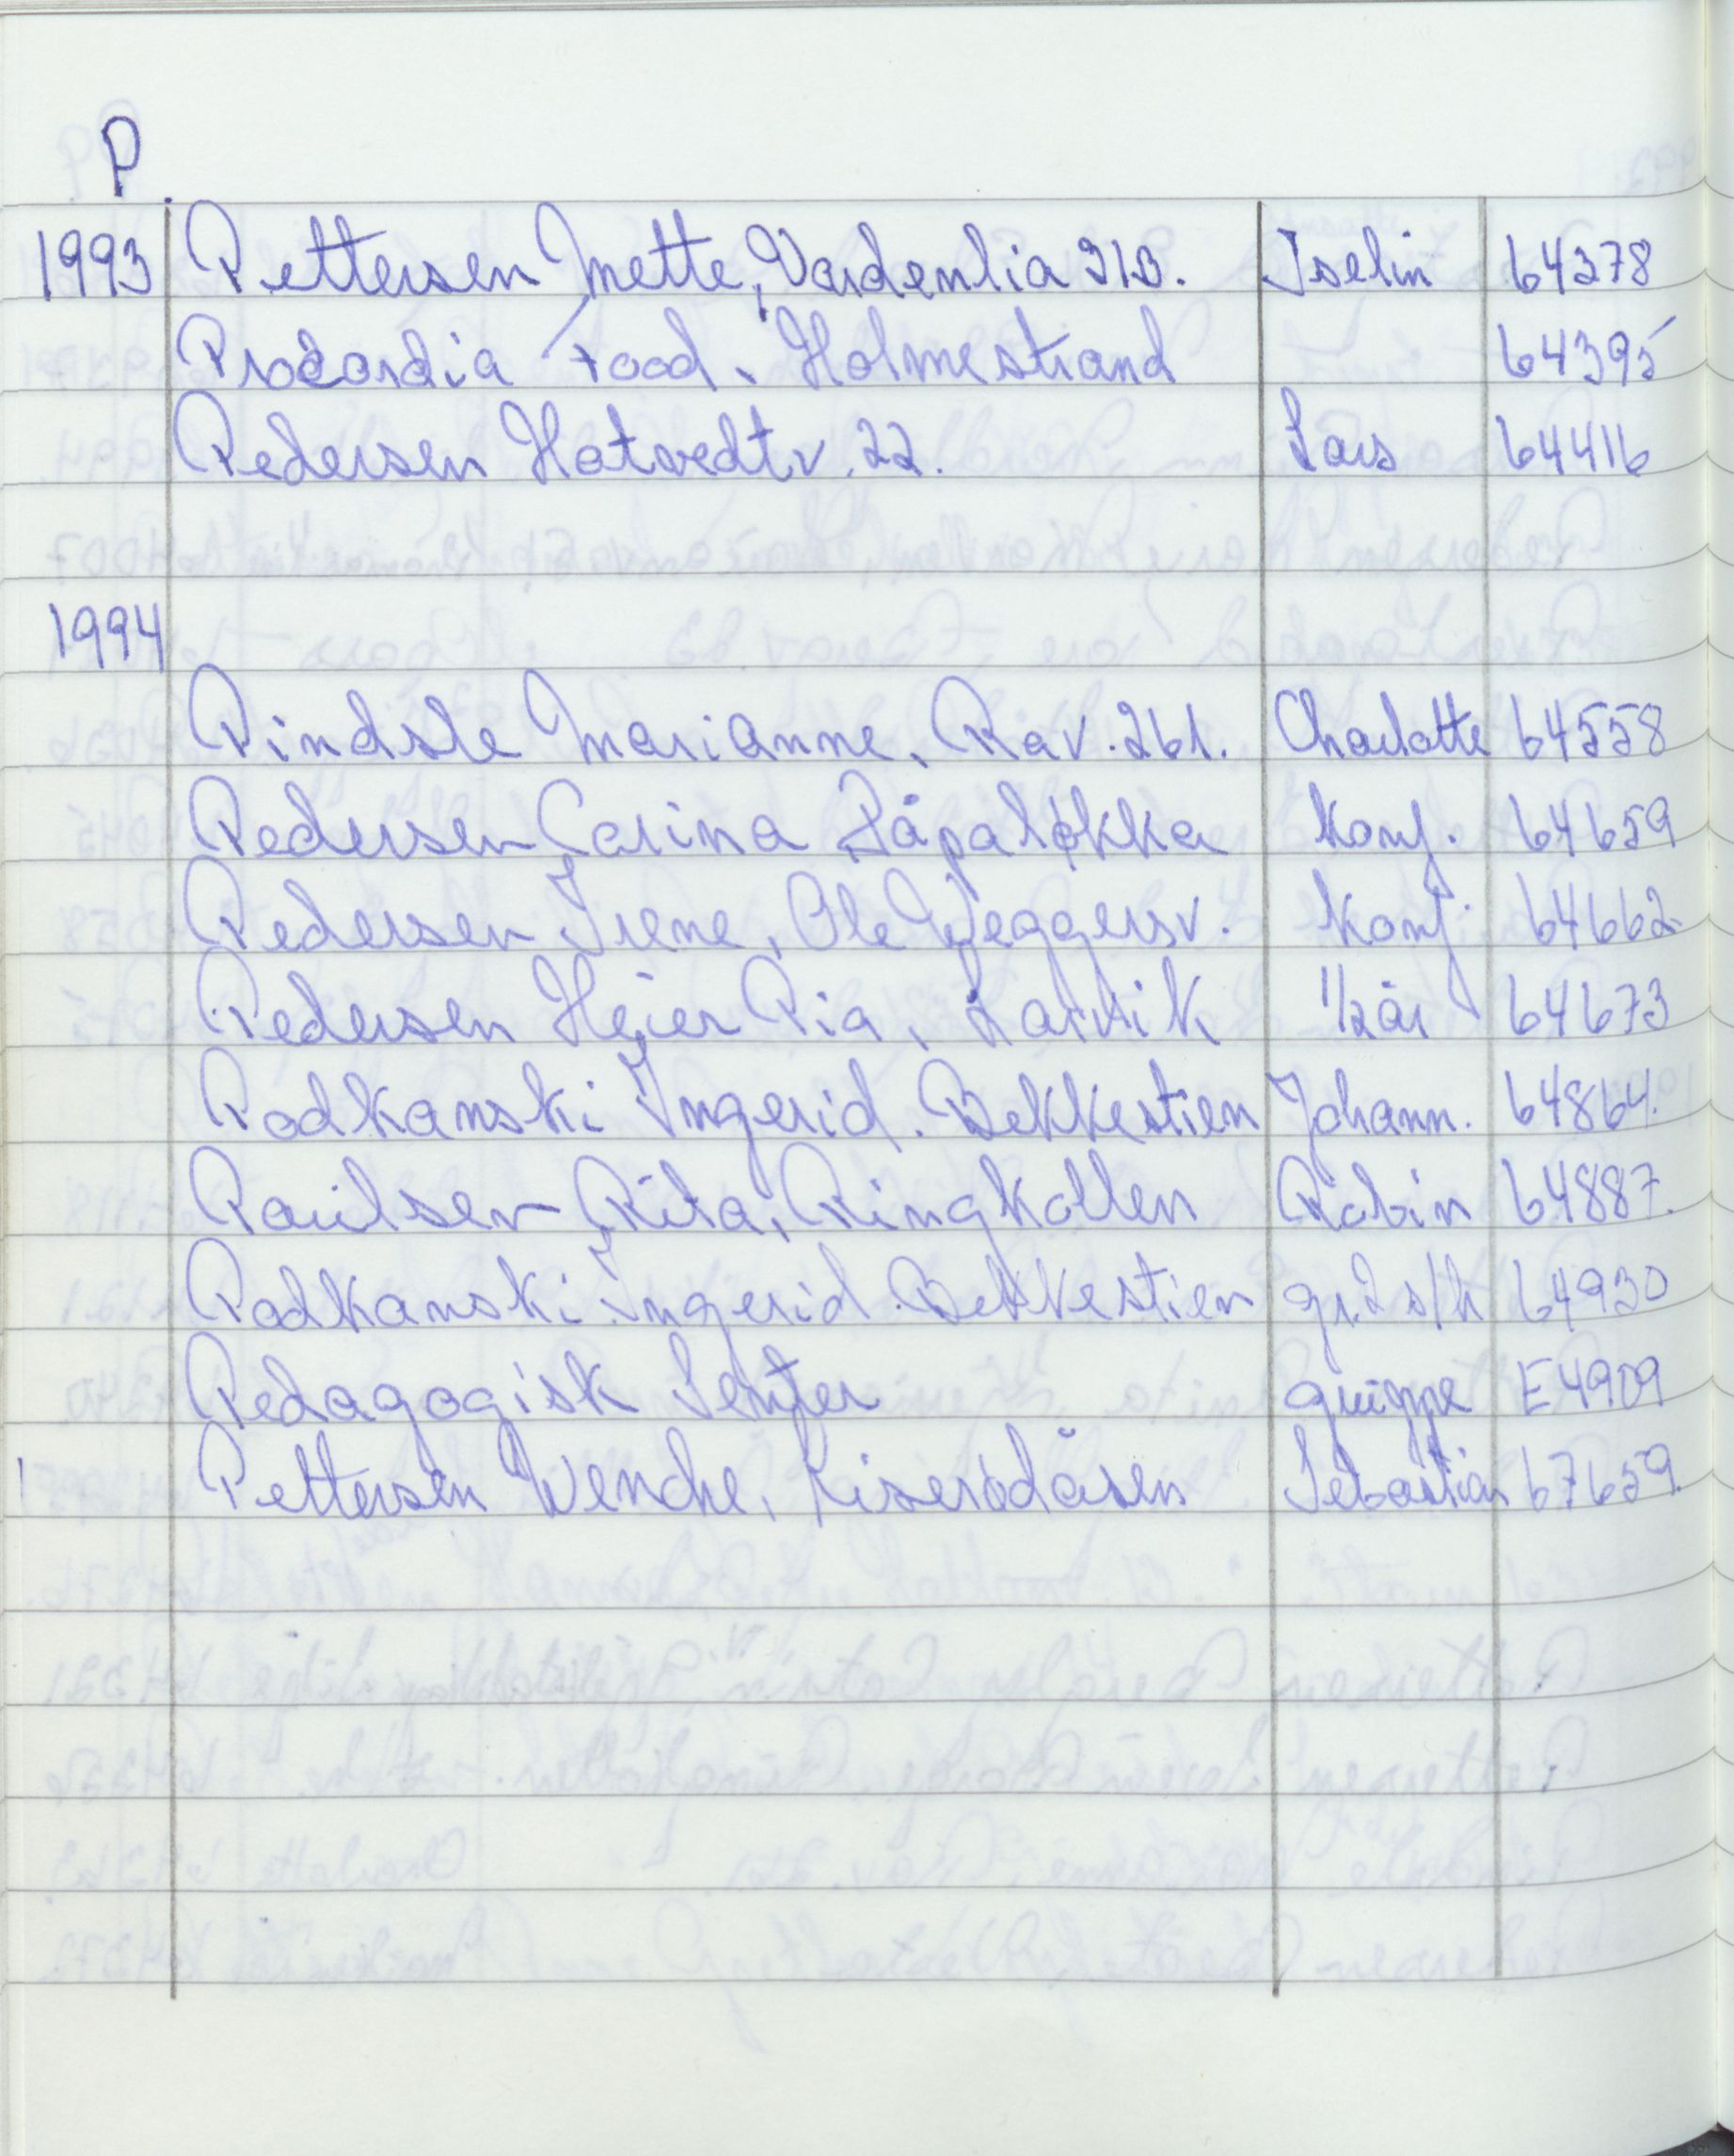 P
1993 Pettersen Mette, Vardenlia 21B. Iselin 64378
Procordia Food, Holmestrand 64395
Pedersen Hotvedtv. 22. Lars 64416
1994
Pindsle Marianne, Rav. 261. Charlotte 64558
Pedersen Carina Råpaløkka Konf. 64659
Pedersen Irene, Ole Weggersv. Konf. 64662
Pedersen Heier Pia, Larvik 1/2 år 64673
Podkanski Ingerid. Bekkestien Johann. 64864.
Paulsen Rita, Ringkollen Robin 64887.
Podkanski Ingerid. Bekkestien gr. 2 s/h 64930
Pedagogisk Senter gruppe E4909
Pettersen Wenche, Kiserødåsen Sebastian 67659.